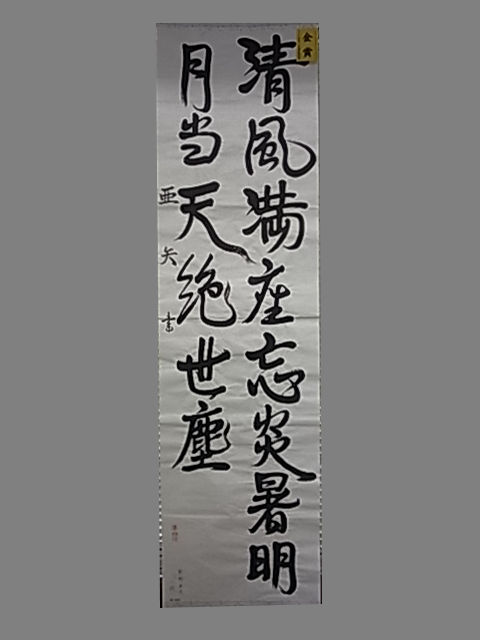 金賞
清風満座忘炎暑明
月当天絶世塵
亜矢書